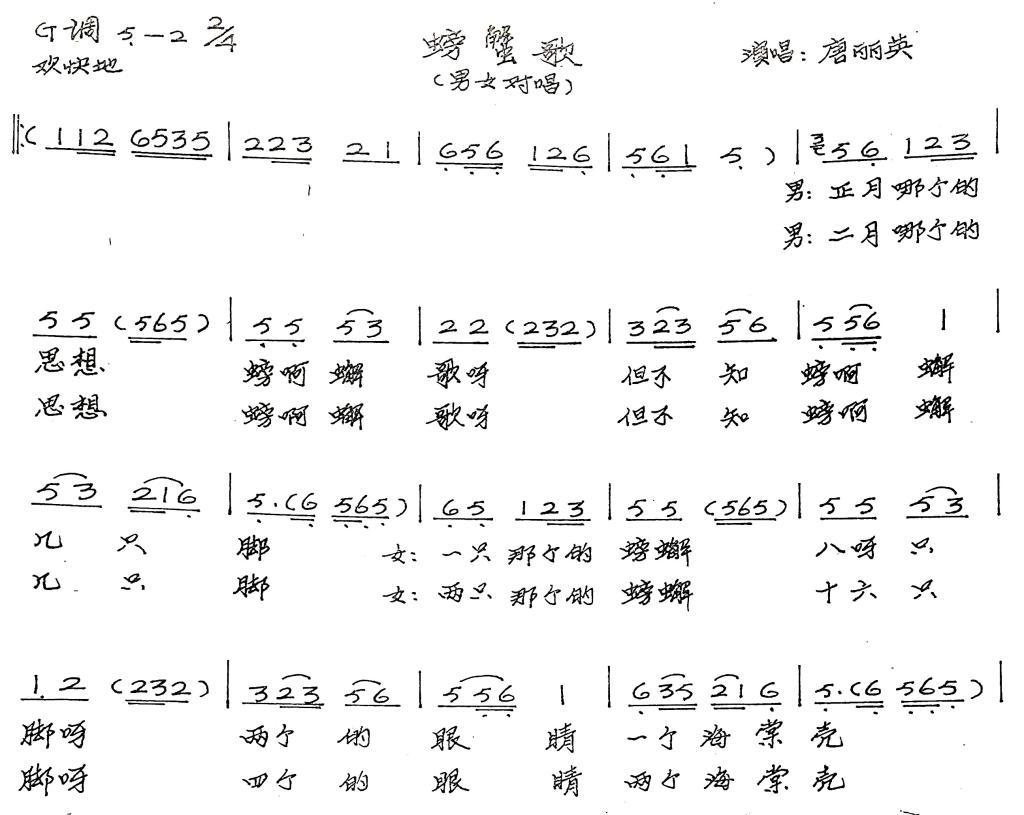 G调 5—2 2/4
螃蟹歌
演唱：唐丽英
欢快地
（男女对唱）
‖:( 112 6535 | 223 21 | 656 126 | 561 5 ) | 56 123 |
男：正月哪个的
男：二月哪个的
55 (565) | 55 53 | 22 (232) | 323 56 | 556 1 |
思想 螃啊蠏 歌呀 但不知 螃啊 蠏
思想 螃啊蠏 歌呀 但不知 螃啊 蠏
53 216 | 5.(6 565) | 65 123 | 55 (565) | 55 53 |
几只 脚 女：一只那个的 螃蠏 八呀只
几只 脚 女：两只那个的 螃蠏 十六只
1.2 (232) | 323 56 | 556 1 | 635 216 | 5.(6 565) |
脚呀 两个的 眼睛 一个海棠壳
脚呀 四个的 眼睛 两个海棠壳